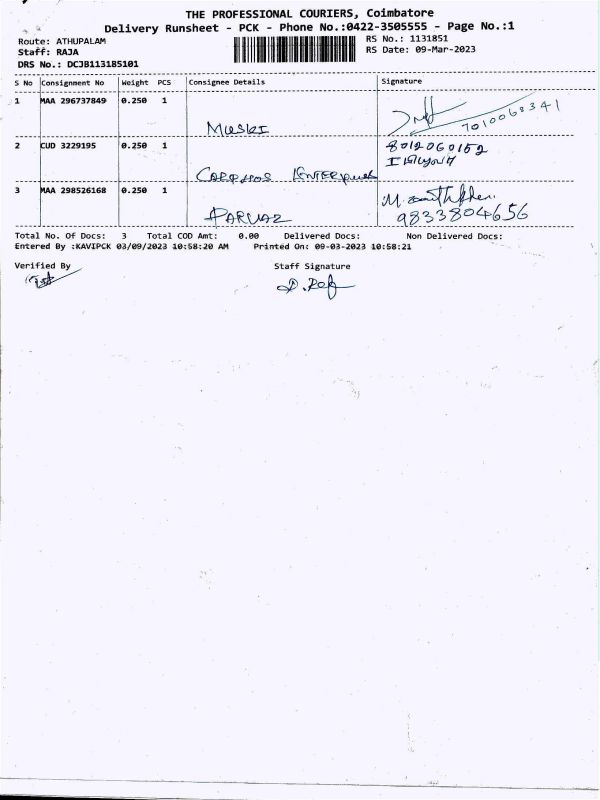 THE PROFESSIONAL COURIERS, Coimbatore
Delivery Runsheet - PCK - Phone No.:0422-3505555 - Page No.:1
Route: ATHUPALAM
Staff: RAJA
DRS No.: DCJB113185101
RS No.: 1131851
RS Date: 09-Mar-2023
S No Consignment No Weight PCS Consignee Details Signature
1 MAA 296737849 0.250 1 MUSKI 7010068341
2 CUD 3229195 0.250 1 8012060152
3 MAA 298526168 0.250 1 PARVAZ 9833804656
Total No. Of Docs: 3 Total COD Amt: 0.00 Delivered Docs: Non Delivered Docs:
Entered By :KAVIPCK 03/09/2023 10:58:20 AM Printed On: 09-03-2023 10:58:21
Verified By Staff Signature